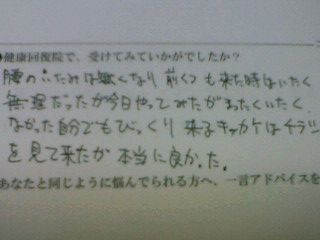 ●健康回復院で、受けてみていかがでしたか？
腰のいたみは無くなり 前くつも来た時はいたく
無理だったが今日やってみたがまったくいたく
なかった自分でもびっくり 来るキッカケはチラシ
を見て来たが 本当に良かった。
あなたと同じように悩んでられる方へ、一言アドバイスを